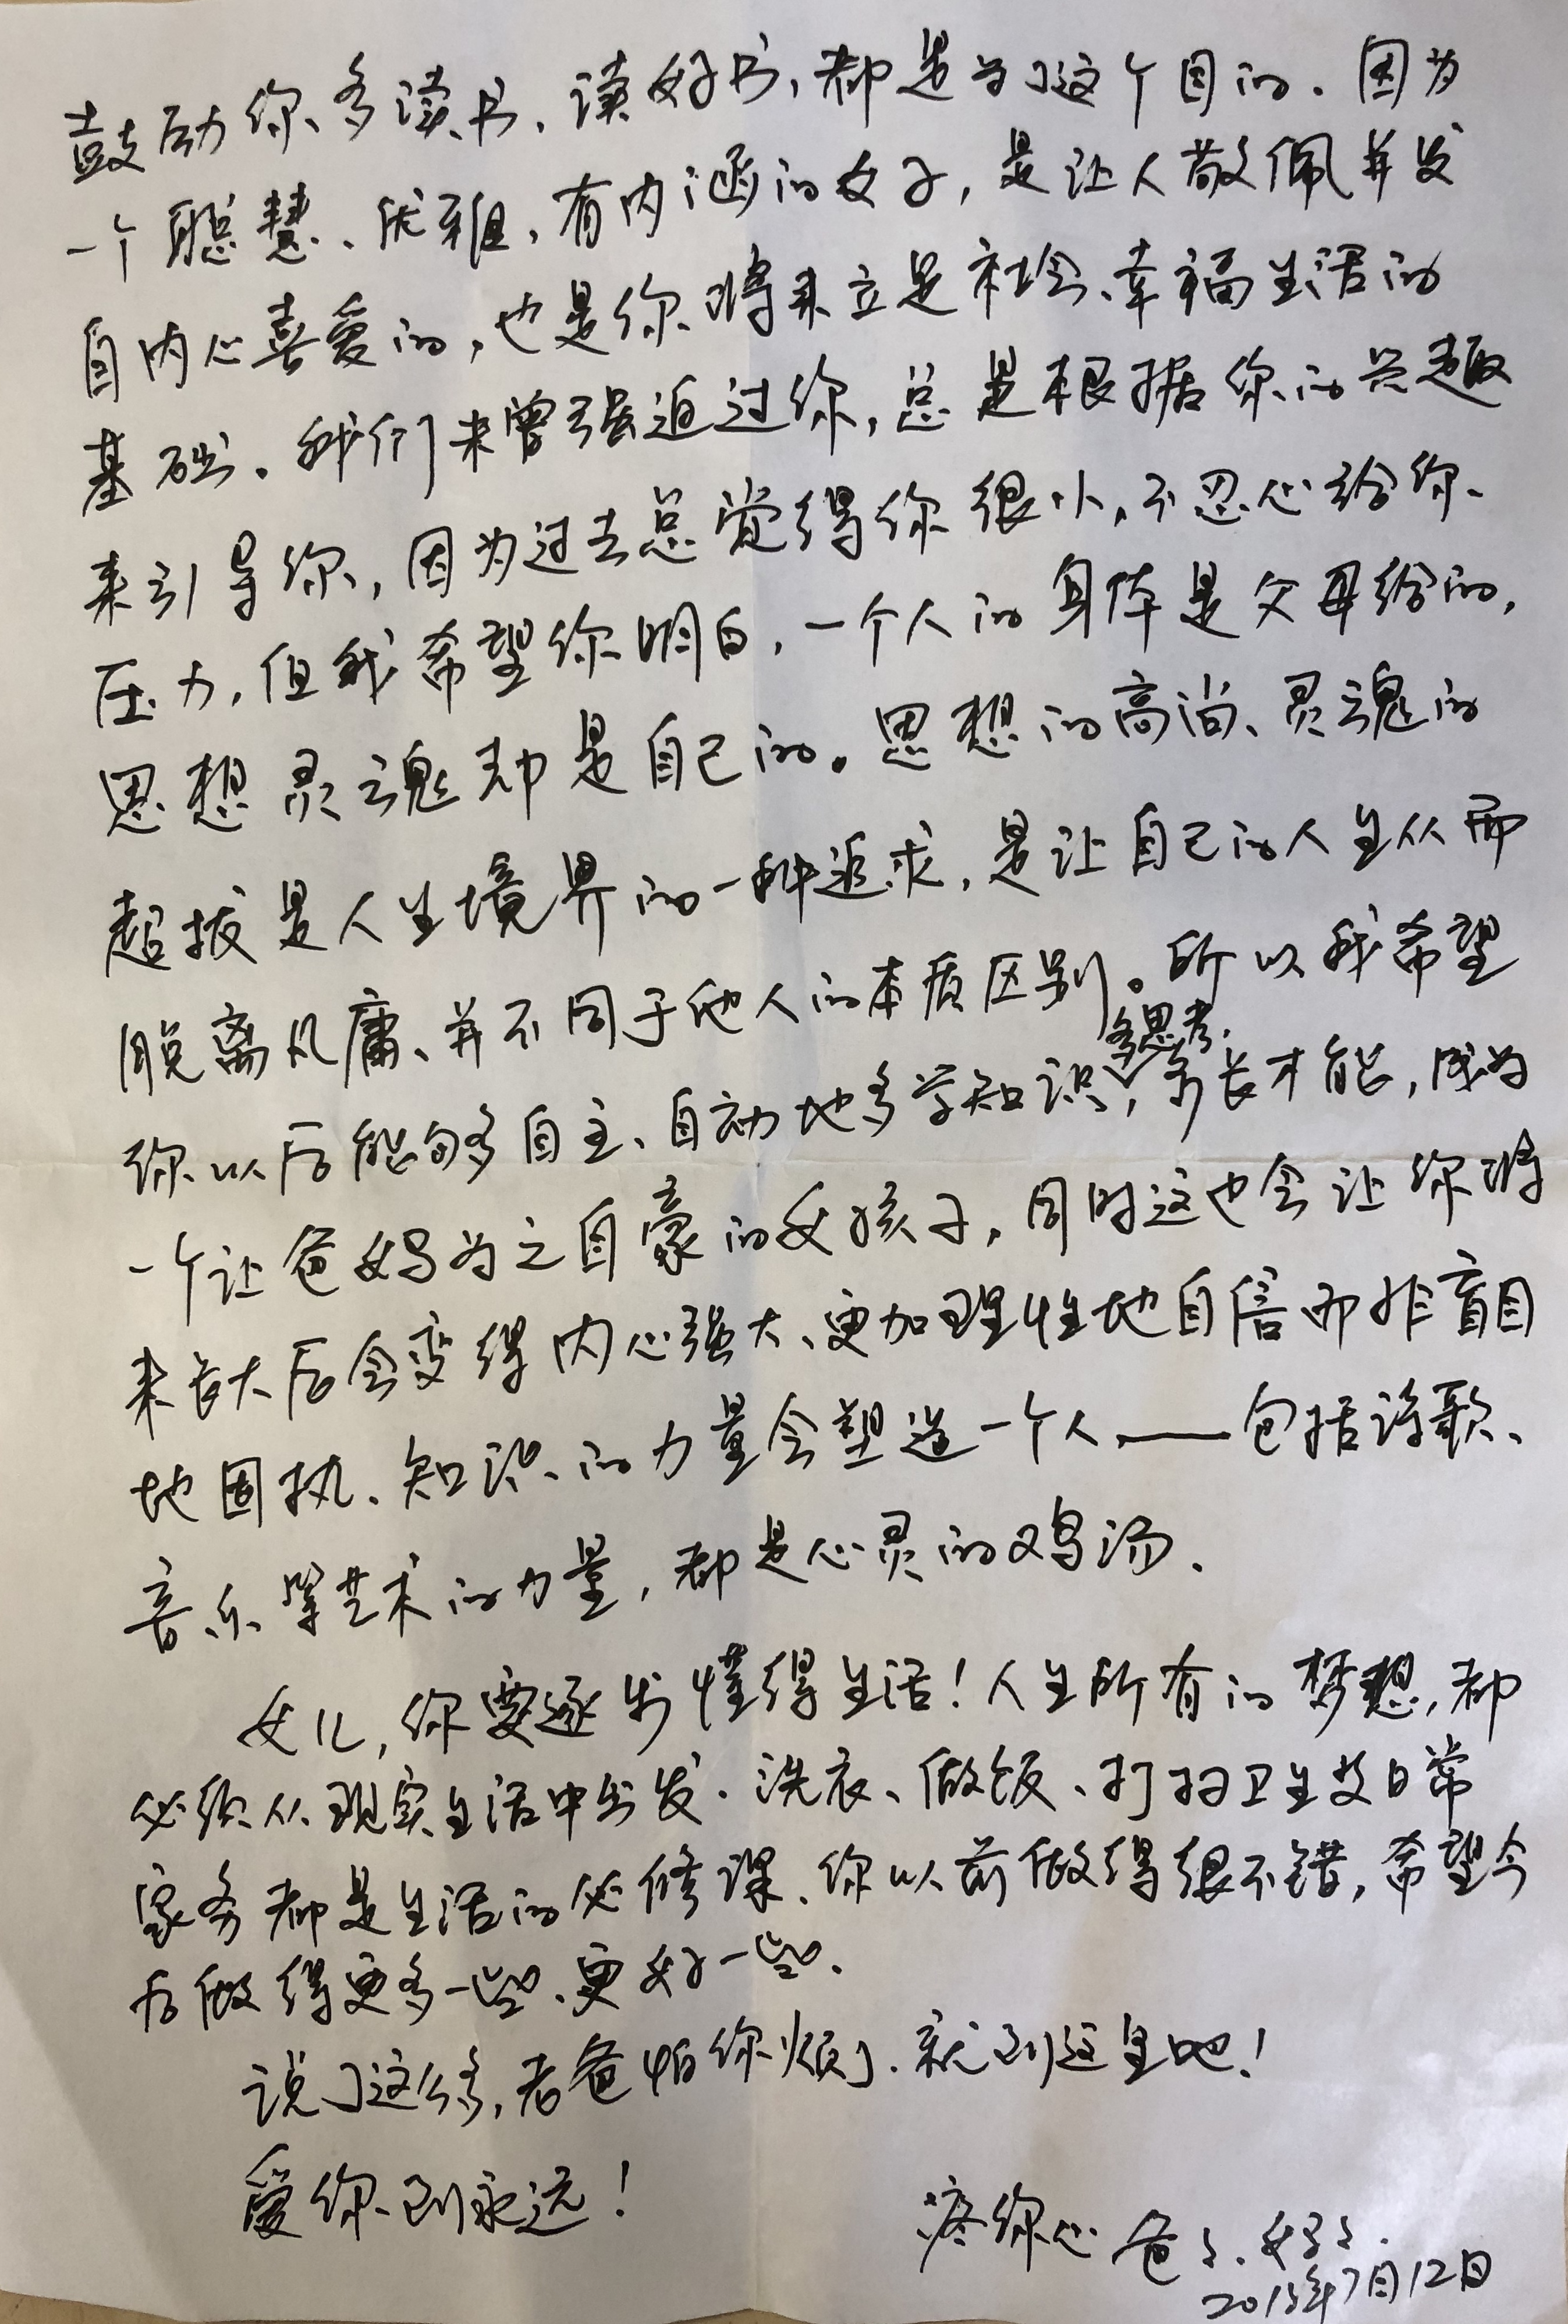 鼓励你多读书、读好书,都是为了这个目的。因为
一个聪慧、优雅、有内涵的女子,是让人敬佩并发
自内心喜爱的,也是你将来立足社会、幸福生活的
基础。我们未曾强迫过你,总是根据你的兴趣
来引导你,因为过去总觉得你很小,不忍心给你
压力,但我希望你明白,一个人的身体是父母给的,
思想灵魂却是自己的。思想的高尚、灵魂的
超拔是人生境界的一种追求,是让自己的人生从而
脱离凡庸、并不同于他人的本质区别。所以我希望
你以后能够自主、自动地多学知识,多思考,多长才能,成为
一个让爸妈为之自豪的女孩子,同时这也会让你将
来长大后会变得内心强大、更加理性地自信而非盲目
地固执。知识的力量会塑造一个人——包括诗歌、
音乐等艺术的力量,都是心灵的鸡汤。
女儿,你要逐步懂得生活!人生所有的梦想,都
必须从现实生活中出发。洗衣、做饭、打扫卫生及日常
家务都是生活的必修课。你以前做得很不错,希望今
后做得更多一些、更好一些。
说了这么多,老爸怕你烦了。就到这里吧!
爱你到永远!
疼你的爸爸、妈妈。
7月12日